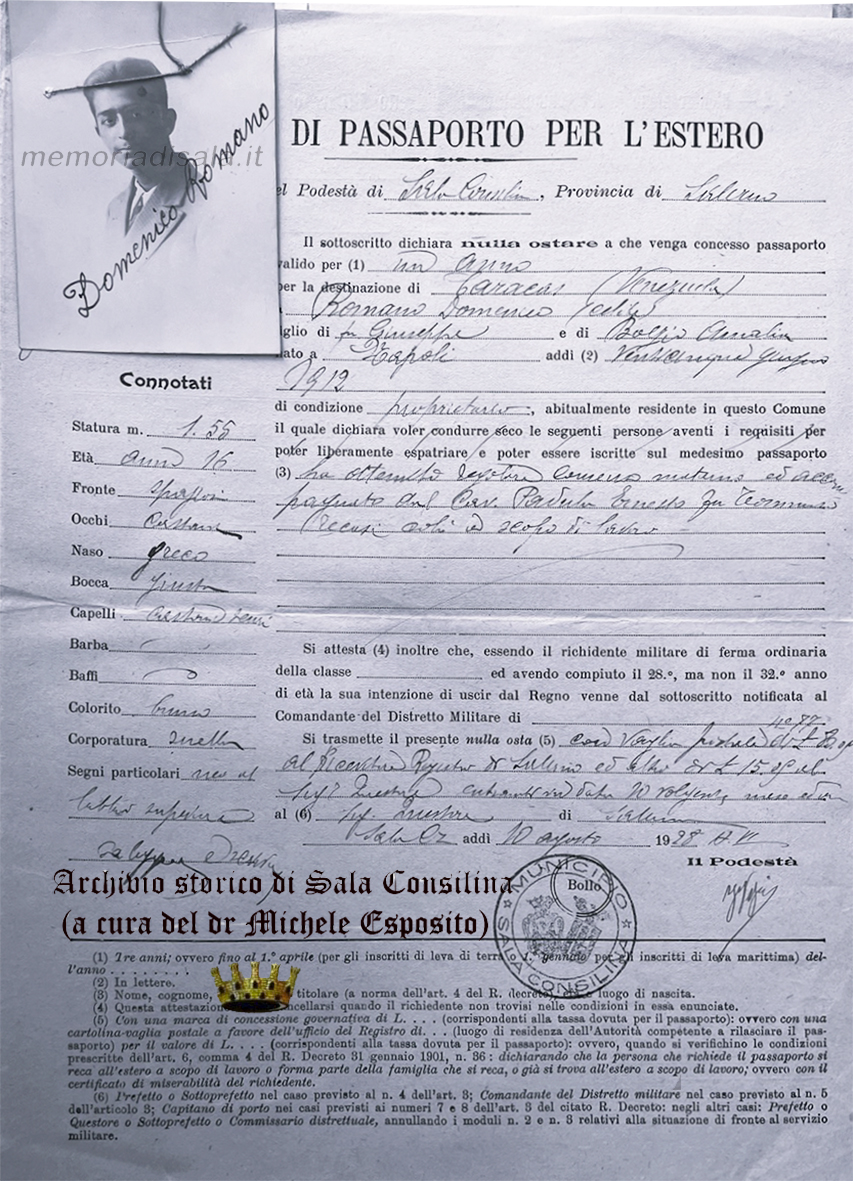 memoriadisala.it
Domenico Romano
DI PASSAPORTO PER L'ESTERO
el Podestà di Sala Consilina, Provincia di Salerno
Il sottoscritto dichiara nulla ostare a che venga concesso passaporto
valido per (1) un anno
per la destinazione di Caracas (Venezuela)
Romano Domenico (celibe)
glio di fu Giuseppe e di Amalia
ato a Napoli addì (2) Venticinque giugno
1912
di condizione proprietario, abitualmente residente in questo Comune
il quale dichiara voler condurre seco le seguenti persone aventi i requisiti per
poter liberamente espatriare e poter essere iscritte sul medesimo passaporto
(3) ha ottenuto regolare consenso materno ed accom
pagnato dal Cav. Padula Ernesto fu Tommaso
recasi colà a scopo di lavoro
Connotati
Statura m. 1.55
Età anni 16
Fronte spaziosa
Occhi castani
Naso greco
Bocca giusta
Capelli castano scuri
Barba
Baffi
Colorito bruno
Corporatura snella
Segni particolari neo al
labbro superiore
Si attesta (4) inoltre che, essendo il richidente militare di ferma ordinaria
della classe ed avendo compiuto il 28.º, ma non il 32.º anno
di età la sua intenzione di uscir dal Regno venne dal sottoscritto notificata al
Comandante del Distretto Militare di
Si trasmette il presente nulla osta (5) con Vaglia postale di £
al Ricevitore Registro di Salerno ed altro di £ 15.05 al
Sig. Questore entrambi in data 10 volgente mese ed anno
al (6) Sig. Questore di Salerno
Sala Cz addì 10 agosto 1928 A. VI
Il Podestà
Bollo
MUNICIPIO
SALA CONSILINA
Archivio storico di Sala Consilina
(a cura del dr Michele Esposito)
(1) Tre anni; ovvero fino al 1.º aprile (per gli inscritti di leva di terra 1.º gennaio per gli inscritti di leva marittima) del-
l'anno . . . . . . . .
(2) In lettere.
(3) Nome, cognome, titolare (a norma dell'art. 4 del R. decreto) luogo di nascita.
(4) Questa attestazion cellarsi quando il richiedente non trovisi nelle condizioni in essa enunciate.
(5) Con una marca di concessione governativa di L. . . . (corrispondenti alla tassa dovuta per il passaporto): ovvero con una
cartolina-vaglia postale a favore dell'ufficio del Registro di. . . . (luogo di residenza dell'Autorità competente a rilasciare il pas-
saporto) per il valore di L. . . . (corrispondenti alla tassa dovuta per il passaporto): ovvero, quando si verifichino le condizioni
prescritte dell'art. 6, comma 4 del R. Decreto 31 gennaio 1901, n. 36 : dichiarando che la persona che richiede il passaporto si
reca all'estero a scopo di lavoro o forma parte della famiglia che si reca, o già si trova all'estero a scopo di lavoro; ovvero con il
certificato di miserabilità del richiedente.
(6) Prefetto o Sottoprefetto nel caso previsto al n. 4 dell'art. 3; Comandante del Distretto militare nel caso previsto al n. 5
dell'articolo 3; Capitano di porto nei casi previsti ai numeri 7 e 8 dell'art. 3 del citato R. Decreto: negli altri casi: Prefetto o
Questore o Sottoprefetto o Commissario distrettuale, annullando i moduli n. 2 e n. 3 relativi alla situazione di fronte al servizio
militare.